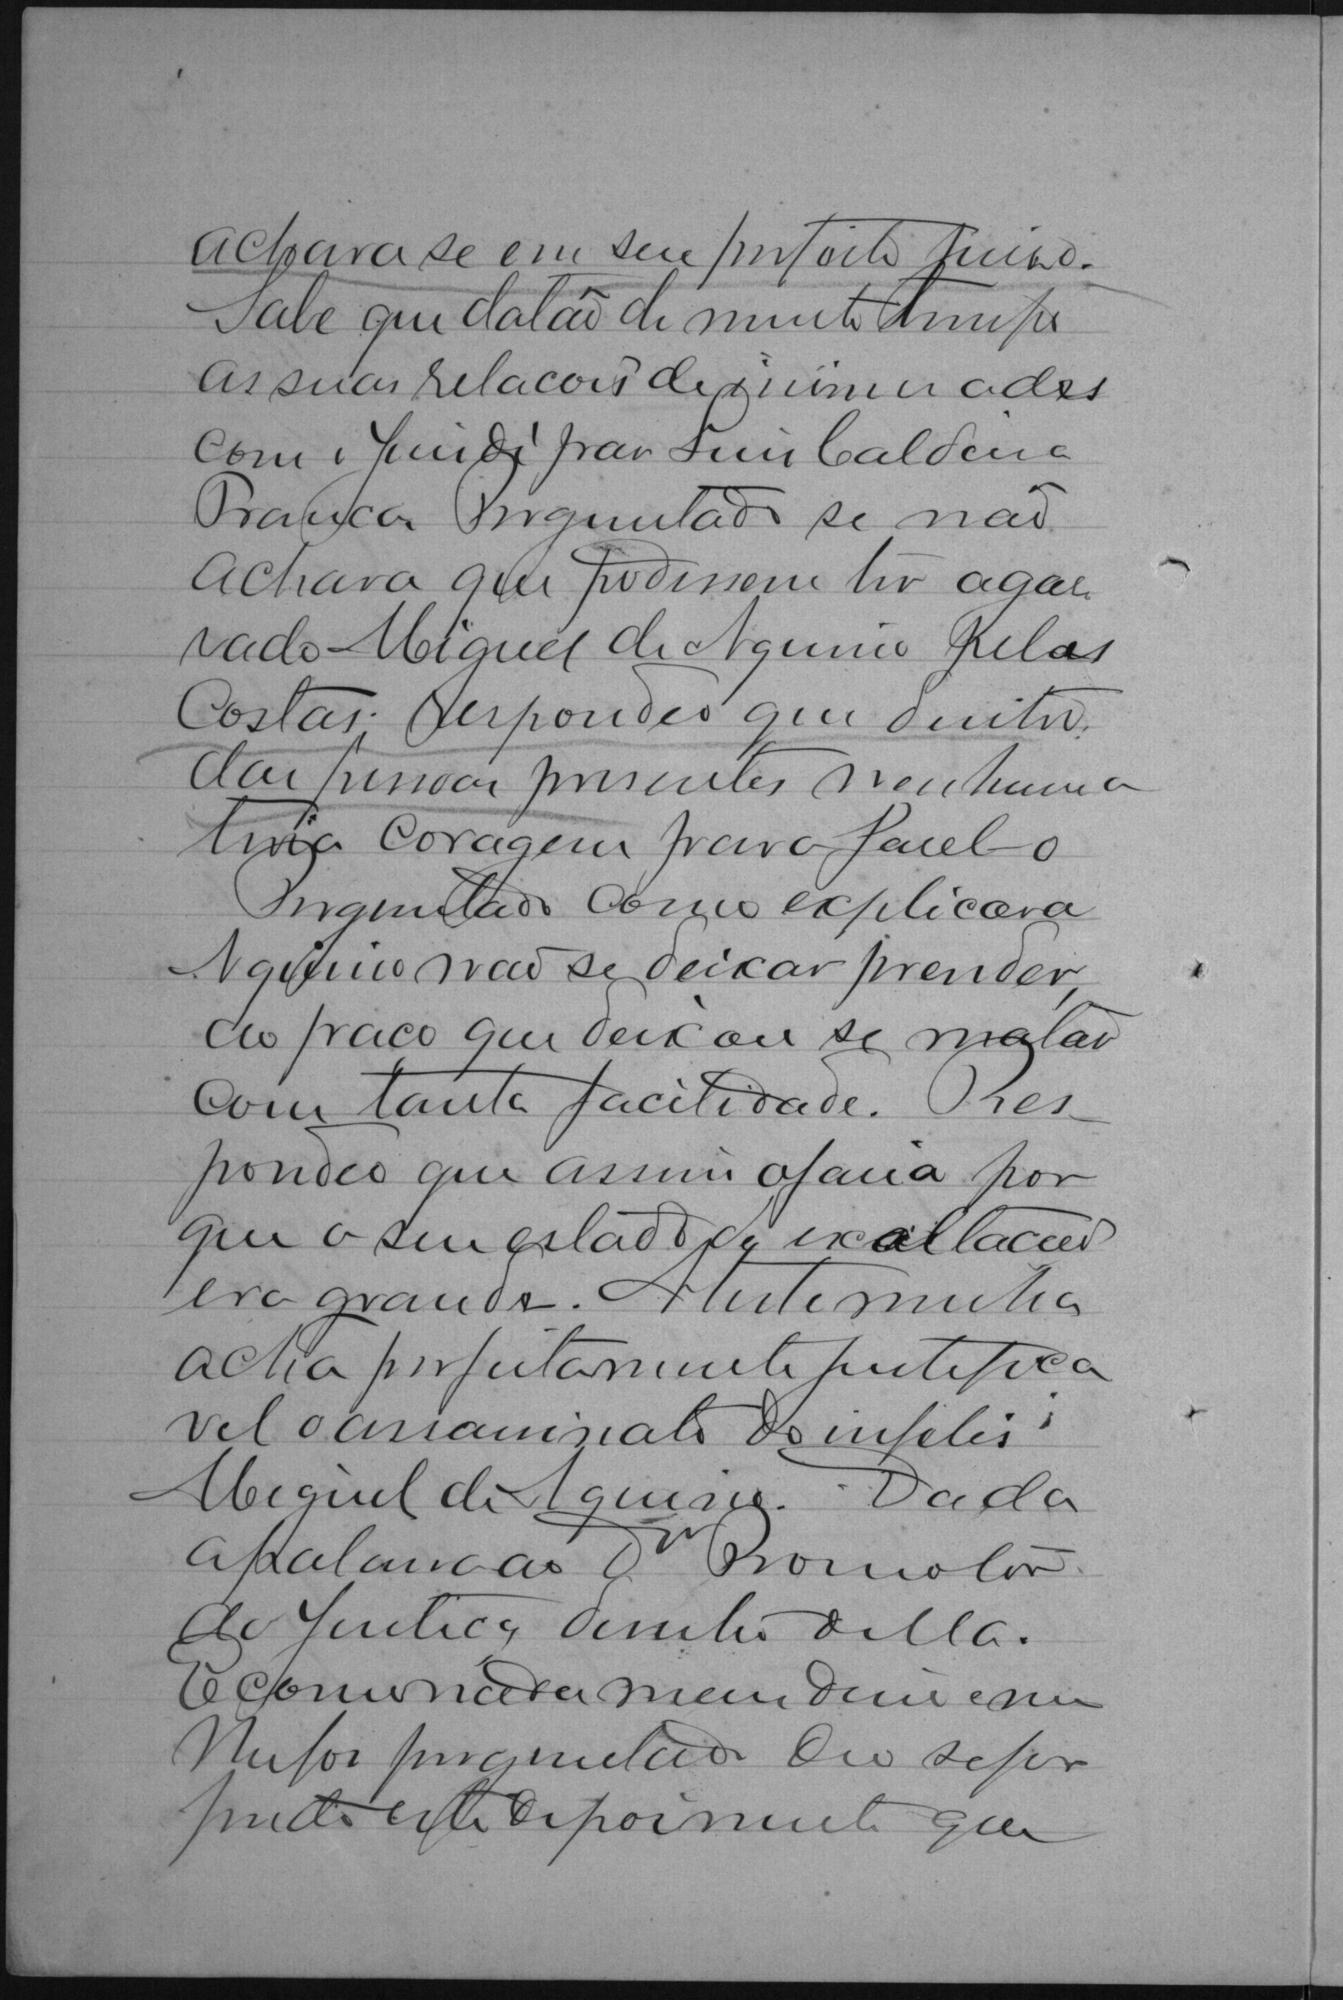 achava se em seu perfeito juiso.
Sabe que datão de muito tempo
as suas relacois de inimisades
com o juiz di paz Luiz Caldeira
Franca Perguntado se não
achava que podessem ter agar
rado Miguel de Aquino pelas
Costas; Respondeo que dentre
das pessoas presentes nenhuma
teria coragem para fazel-o
Perguntado como explicava
Aquino não se deixar prender,
ao paço que deixou se matar
com tanta facilidade. Res
pondeo que assim o faria por
que o seu estado de exaltacão
era grande. A testemunha
acha perfeitamente justifica
vel o assassinato do infelis
Miguel de Aquino. Dada
a palavra ao Dr Promotor
de Justiça, desistio della.
E como nada mais disse nem
lhe foi perguntado deo se por
findo este depoimento que